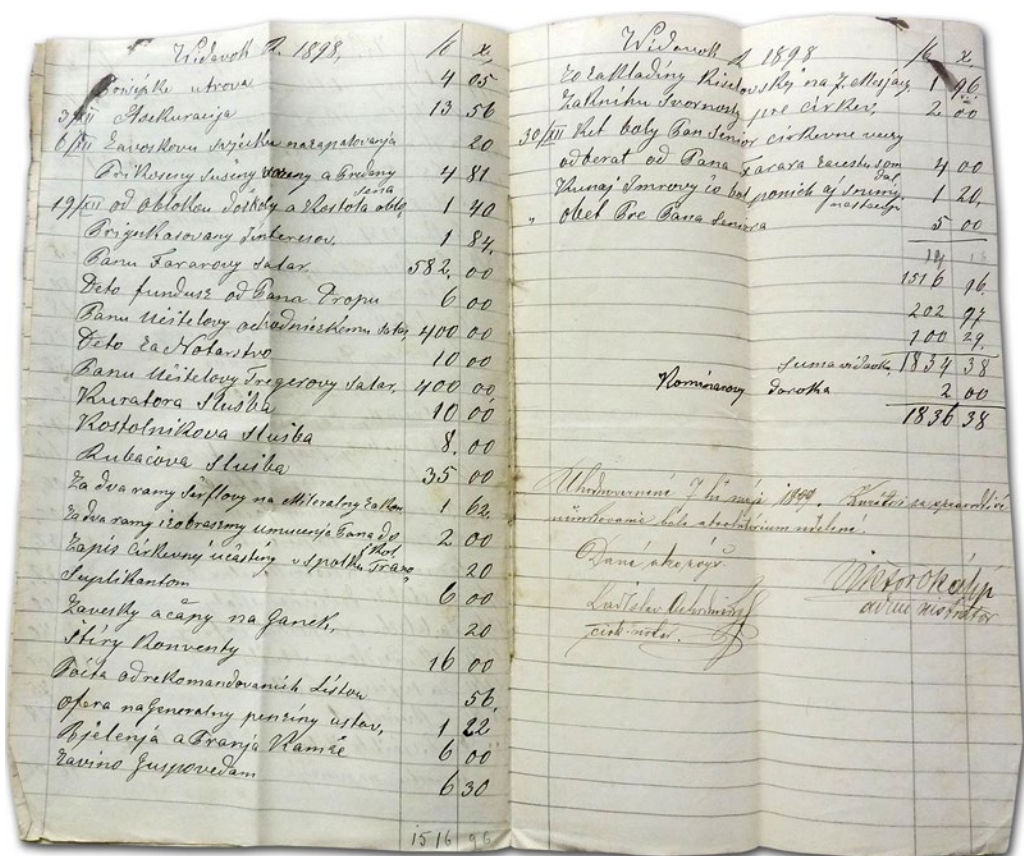 Widavok R. 1898, fl x
utrova 4 05
3/XII Asekuracija 13 56
6/XII Zavoskovu svječku nazapalovanja 20
Prikoseny suseny vozeny a Predany sena 4 81
19/XII od oblokou doskoly a Kostola 1 40
Interesov, 1 84,
Panu Fararovy salar 582, 00
Deto fundusz od Pana Dropu 6 00
Panu Učitelovy salar, 400 00
Deto za Notarstvo 10 00
Panu Učitelovy Tregerovy Salar, 400 00,
Kuratora Slusba 10 00
Kostolnikova Slusba 8. 00
Rubačova Slusba 35 00
Za dva ramy na 1 62.
Za dva ramy izobrazmy umucenja Pana do Kost. 2 00
Zapis Cirkevnej učastiny v spolku Trano, 20
Suplikantom 6 00
Zavesky ačapy na Ganek, 20
Štiry Konventy 16 00
Počta odrekomandovanich Listou 56,
Ofera na Generalny penziny ustav, 1 22
Bjelenja a Pranja Kamže 6 00
Zavino Guspovedam 6 30
1516 96
Widavok R 1898 fl x
Zo Zakladiny na 7. Mesjacy, 1 96
Zaknihu Svornosty pre Cirkev, 2 00
30/XII Ket boly Pan Senior cirkevne vecy
odberat od Pana Farara 4 00
Kunaj Imrovy čo bol ponich aj 1 20,
" obet Pre Pana Seniora 5 00
14 16
1516 96.
202 97
100 29.
Suma vidavku, 1834 38
Kominarovy darotka 2 00
1836 38
7 ho mája 1899.
bolo absolutorium udelené.
Dáné ako výš.
Ladislav
cirk. notár.
Viktor
administrator